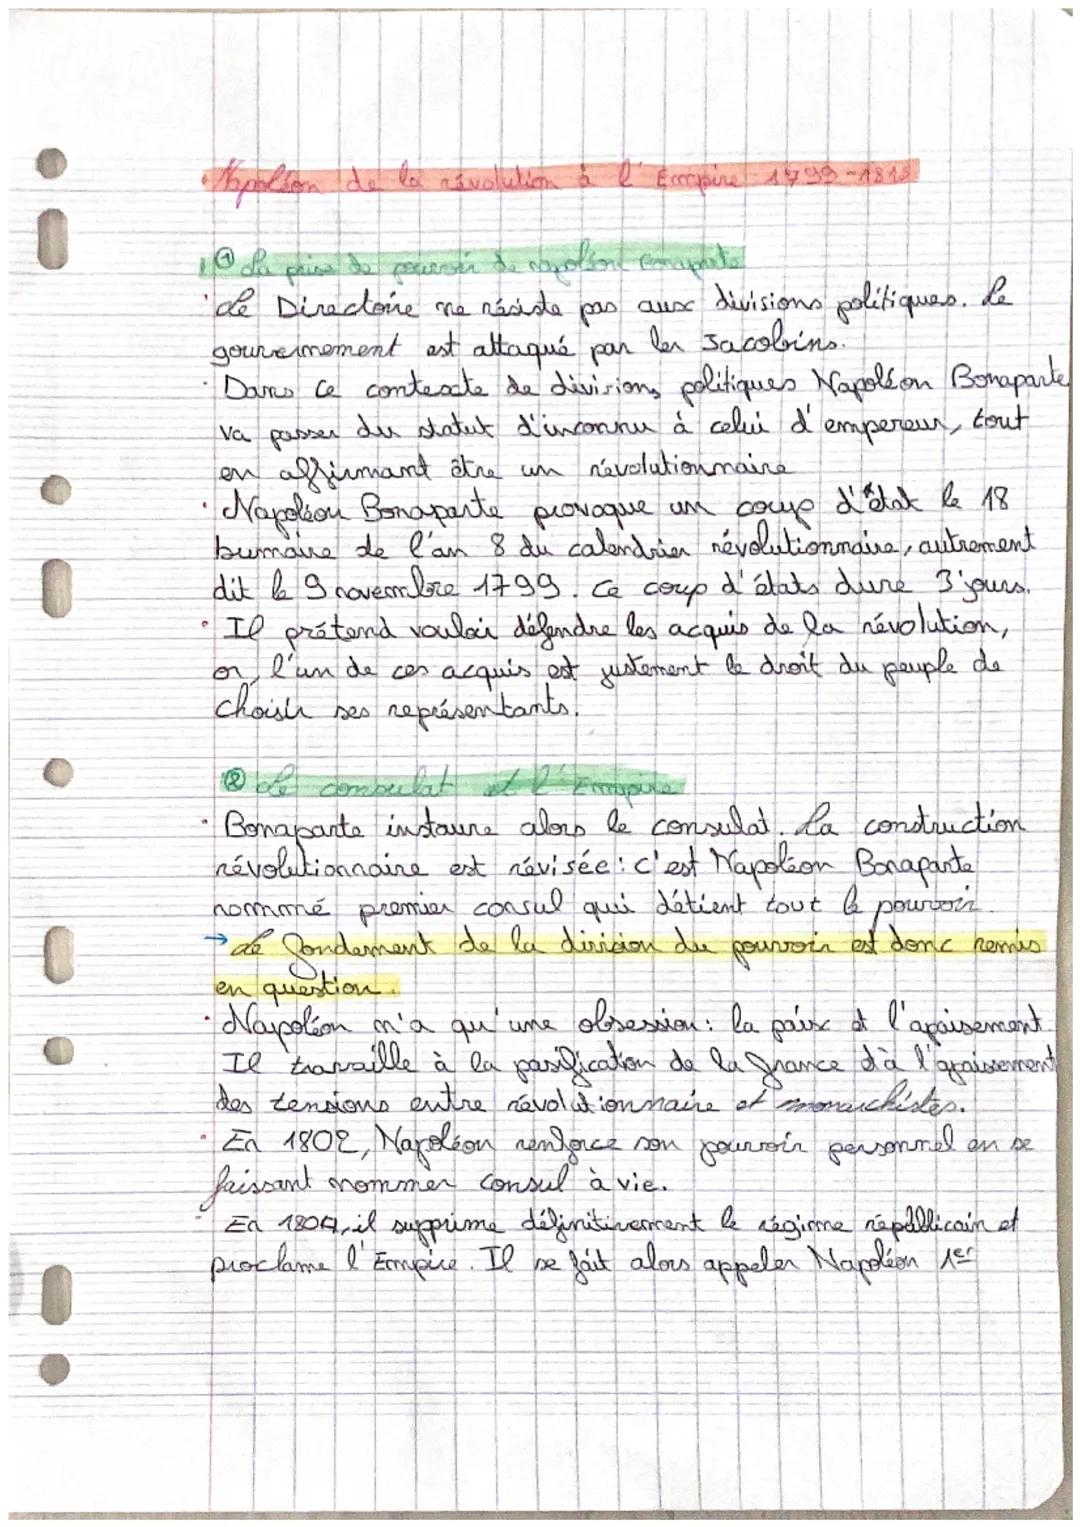 • Napoléon de la révolution à l'Empire 1799-1815
① La prise de pouvoir de napoléon Bonaparte
• Le Directoire ne résiste pas aux divisions politiques. Le
gouvernement est attaqué par les Jacobins.
• Dans ce contexte de divisions politiques Napoléon Bonaparte
va passer du statut d'inconnu à celui d'empereur, tout
en affirmant être un révolutionnaire
• Napoléon Bonaparte provoque un coup d'état le 18
bumaire de l'an 8 du calendrier révolutionnaire, autrement
dit le 9 novembre 1799. Ce coup d'états dure 3 jours.
• Il prétend vouloir défendre les acquis de la révolution,
or, l'un de ces acquis est justement le droit du peuple de
choisir ses représentants.
② Le consulat et l'Empire
• Bonaparte instaure alors le consulat. La construction
révolutionnaire est révisée : c'est Napoléon Bonaparte
nommé premier consul qui détient tout le pouvoir.
→ Le fondement de la division du pouvoir est donc remis
en question.
• Napoléon n'a qu'une obsession : la paix et l'apaisement.
Il travaille à la pasification de la France et à l'apaisement
des tensions entre révolutionnaire et monarchistes.
• En 1802, Napoléon renforce son pouvoir personnel en se
faissant nommer consul à vie.
• En 1804, il supprime définitivement le régime républicain et
proclame l'Empire. Il se fait alors appeler Napoléon 1er